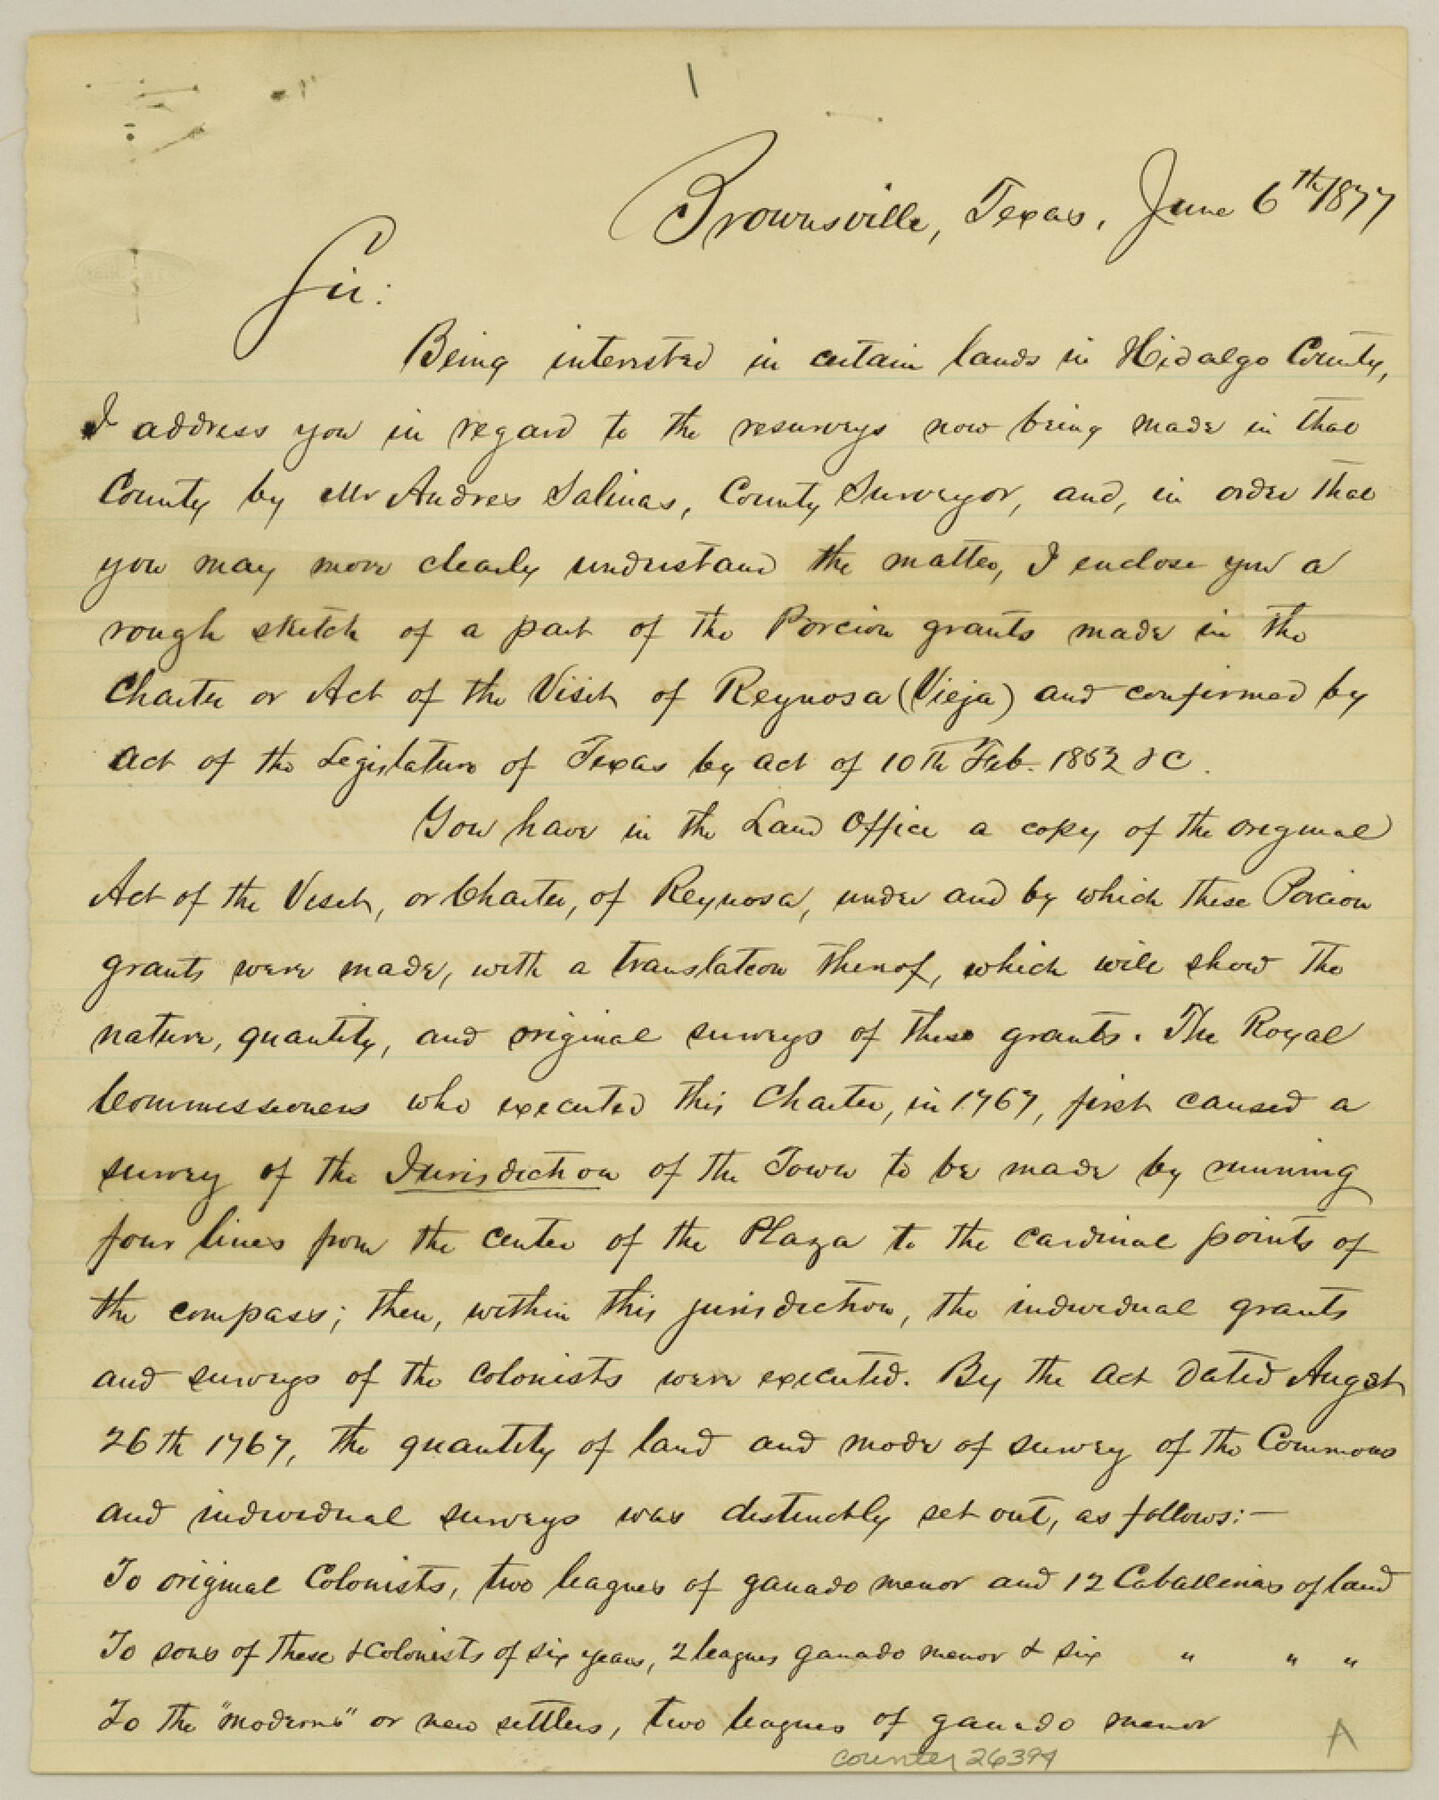 Brownsville, Texas, June 6th/1877
Sir:
Being interested in certain lands in Hidalgo County,
I address you in regard to the resurveys now being made in that
County by Mr Andres Salinas, County Surveyor, and, in order that
you may more clearly understand the matter, I enclose you a
rough sketch of a part of the Porcion grants made in the
Charter or Act of the Visit of Reynosa (Vieja) and confirmed by
act of the Legislature of Texas by act of 10th Feb. 1852 &C.
You have in the Land Office a copy of the original
Act of the Visit, or Charter, of Reynosa, under and by which these Porcion
grants were made, with a translation thereof, which will show the
nature, quantity, and original surveys of these grants. The Royal
Commissioners who executed this Charter, in 1767, first caused a
survey of the Jurisdiction of the Town to be made by running
four lines from the center of the Plaza to the cardinal points of
the compass; then, within this jurisdiction, the individual grants
and surveys of the colonists were executed. By the act dated Augst
26th 1767, the quantity of land and mode of survey of the Commons
and individual surveys was distinctly set out, as follows:—
To original Colonists, two leagues of ganado menor and 12 Caballerias of land
To sons of these & colonists of six years, 2 leagues ganado menor & six " " "
To the "moderns" or new settlers, two leagues of ganado menor
counter 26394
A